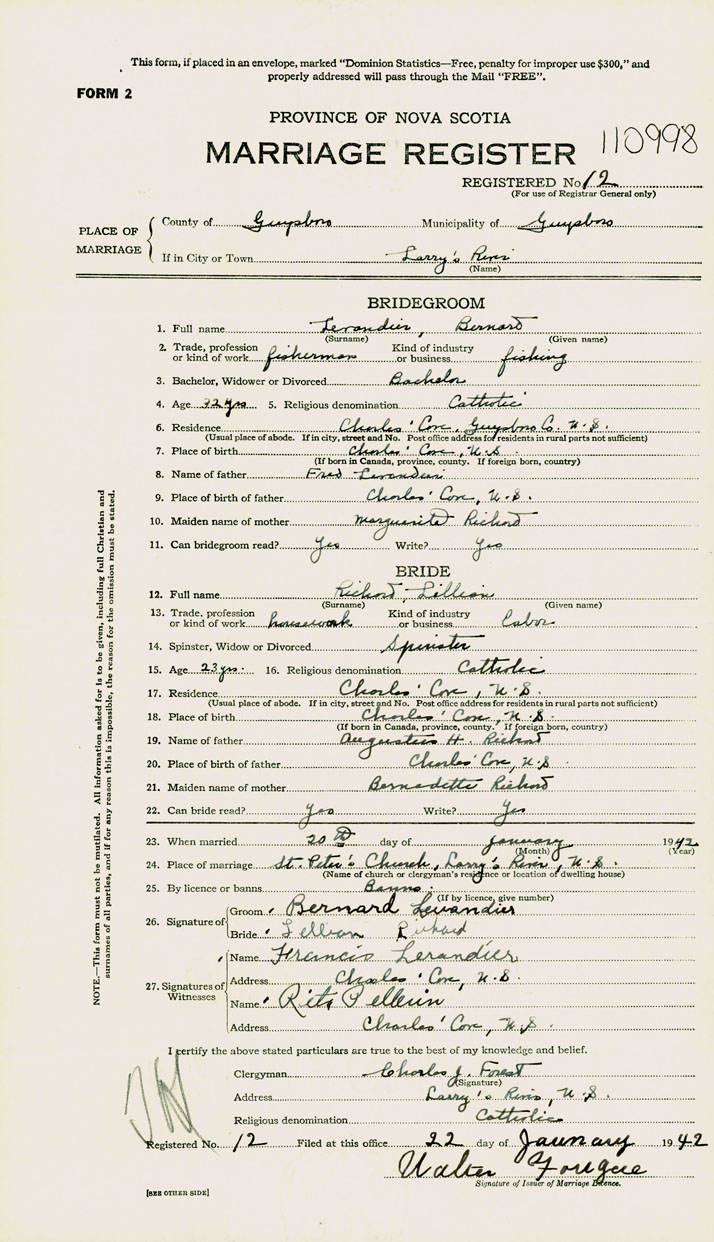 This form, if placed in an envelope, marked "Dominion Statistics—Free, penalty for improper use $300," and
properly addressed will pass through the Mail "FREE".
FORM 2
PROVINCE OF NOVA SCOTIA
MARRIAGE REGISTER 110998
REGISTERED No. 12
(For use of Registrar General only)
PLACE OF MARRIAGE
County of Guysboro Municipality of Guysboro
If in City or Town Larry's River
(Name)
BRIDEGROOM
1. Full name Levandier, Bernard
(Surname) (Given name)
2. Trade, profession or kind of work fisherman Kind of industry or business fishing
3. Bachelor, Widower or Divorced Bachelor
4. Age 32 yrs 5. Religious denomination Catholic
6. Residence Charles' Cove, Guysboro Co. N.S.
(Usual place of abode. If in city, street and No. Post office address for residents in rural parts not sufficient)
7. Place of birth Charles' Cove, N.S.
(If born in Canada, province, county. If foreign born, country)
8. Name of father Fred Levandier
9. Place of birth of father Charles' Cove, N.S.
10. Maiden name of mother Marguerite Richard
11. Can bridegroom read? Yes Write? Yes
BRIDE
12. Full name Richard, Lillian
(Surname) (Given name)
13. Trade, profession or kind of work housework Kind of industry or business labor
14. Spinster, Widow or Divorced Spinster
15. Age 23 yrs. 16. Religious denomination Catholic
17. Residence Charles' Cove, N.S.
(Usual place of abode. If in city, street and No. Post office address for residents in rural parts not sufficient)
18. Place of birth Charles' Cove, N.S.
(If born in Canada, province, county. If foreign born, country)
19. Name of father Augustus H. Richard
20. Place of birth of father Charles' Cove, N.S
21. Maiden name of mother Bernadette Richard
22. Can bride read? Yes Write? Yes
23. When married 20th day of January 1942
(Month) (Year)
24. Place of marriage St. Peter's Church, Larry's River, N.S.
(Name of church or clergyman's residence or location of dwelling house)
25. By licence or banns Banns.
(If by licence, give number)
26. Signature of
Groom Bernard Levandier
Bride Lillian Richard
27. Signatures of Witnesses
Name Francis Levandier
Address Charles' Cove, N.S.
Name Rita Pellerin
Address Charles' Cove, N.S.
I certify the above stated particulars are true to the best of my knowledge and belief.
Clergyman Charles J. Forest
(Signature)
Address Larry's River, N.S.
Religious denomination Catholic
Registered No. 12 Filed at this office 22 day of January 1942
Walter Fougere
Signature of Issuer of Marriage Licence.
[SEE OTHER SIDE]
NOTE.—This form must not be mutilated. All information asked for is to be given, including full Christian and
surnames of all parties, and if for any reason this is impossible, the reason for the omission must be stated.